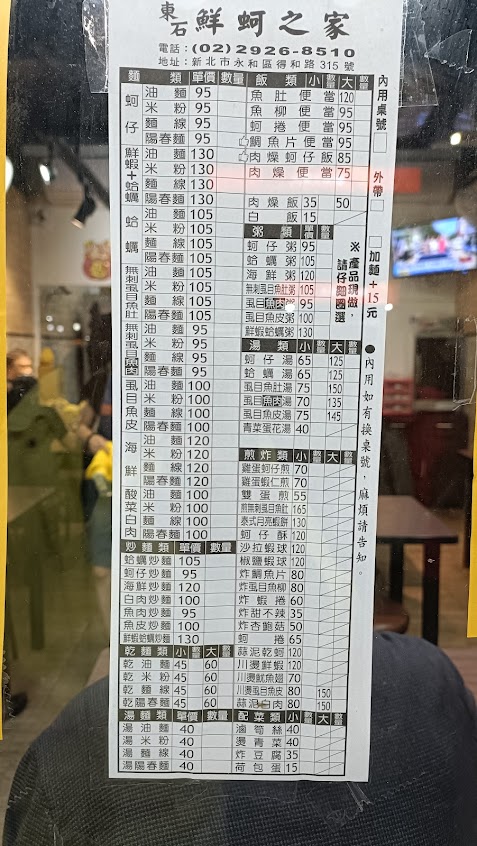 東石 鮮蚵之家
電話：(02)2926-8510
地址：新北市永和區得和路 315 號
麵類 單價 數量
蚵仔 油麵 95
米粉 95
麵線 95
陽春麵 95
鮮蝦+蛤蠣 油麵 130
米粉 130
麵線 130
陽春麵 130
蛤蠣 油麵 105
米粉 105
麵線 105
陽春麵 105
無刺虱目魚肚 油麵 105
米粉 105
麵線 105
陽春麵 105
無刺虱目魚肉 油麵 95
米粉 95
麵線 95
陽春麵 95
虱目魚皮 油麵 100
米粉 100
麵線 100
陽春麵 100
海鮮 油麵 120
米粉 120
麵線 120
陽春麵 120
酸菜白肉 油麵 100
米粉 100
麵線 100
陽春麵 100
炒麵類 單價 數量
蛤蠣炒麵 105
蚵仔炒麵 95
海鮮炒麵 120
白肉炒麵 100
魚肉炒麵 95
魚皮炒麵 100
鮮蝦蛤蠣炒麵 130
乾麵類 小 數量 大 數量
乾油麵 45 60
乾米粉 45 60
乾麵線 45 60
乾陽春麵 45 60
湯麵類 單價 數量
湯油麵 40
湯米粉 40
湯麵線 40
湯陽春麵 40
飯類 小 數量 大 數量
魚肚便當 120
魚柳便當 95
蚵捲便當 95
鯛魚片便當 95
肉燥蚵仔飯 85
肉燥便當 75
肉燥飯 35 50
白飯 15
粥類 單價 數量
蚵仔粥 95
蛤蠣粥 105
海鮮粥 120
無刺虱目魚肚粥 105
虱目魚肉粥 95
虱目魚皮粥 100
鮮蝦蛤蠣粥 130
※產品現做，
請仔細圈選
湯類 小 數量 大 數量
蚵仔湯 65 125
蛤蠣湯 65 125
虱目魚肚湯 75 150
虱目魚肉湯 70 135
虱目魚皮湯 75 145
青菜蛋花湯 40
煎炸類 小 數量 大 數量
雞蛋蚵仔煎 70
雞蛋蝦仁煎 70
雙蛋煎 55
煎無刺虱目魚肚 165
泰式月亮蝦餅 130
蚵仔酥 120
沙拉蝦球 120
椒鹽蝦球 120
炸鯛魚片 80
炸虱目魚柳 80
炸蝦捲 60
炸甜不辣 35
炸杏鮑菇 50
蚵捲 65
蒜泥乾蚵 120
川燙鮮蝦 120
川燙魷魚翅 70
川燙虱目魚皮 80 150
蒜泥白肉 80 150
配菜類 小 數量 大 數量
滷筍絲 40
燙青菜 40
炸豆腐 35
荷包蛋 15
內用桌號
外帶
加麵+15元
●內用如有換桌號，麻煩請告知。